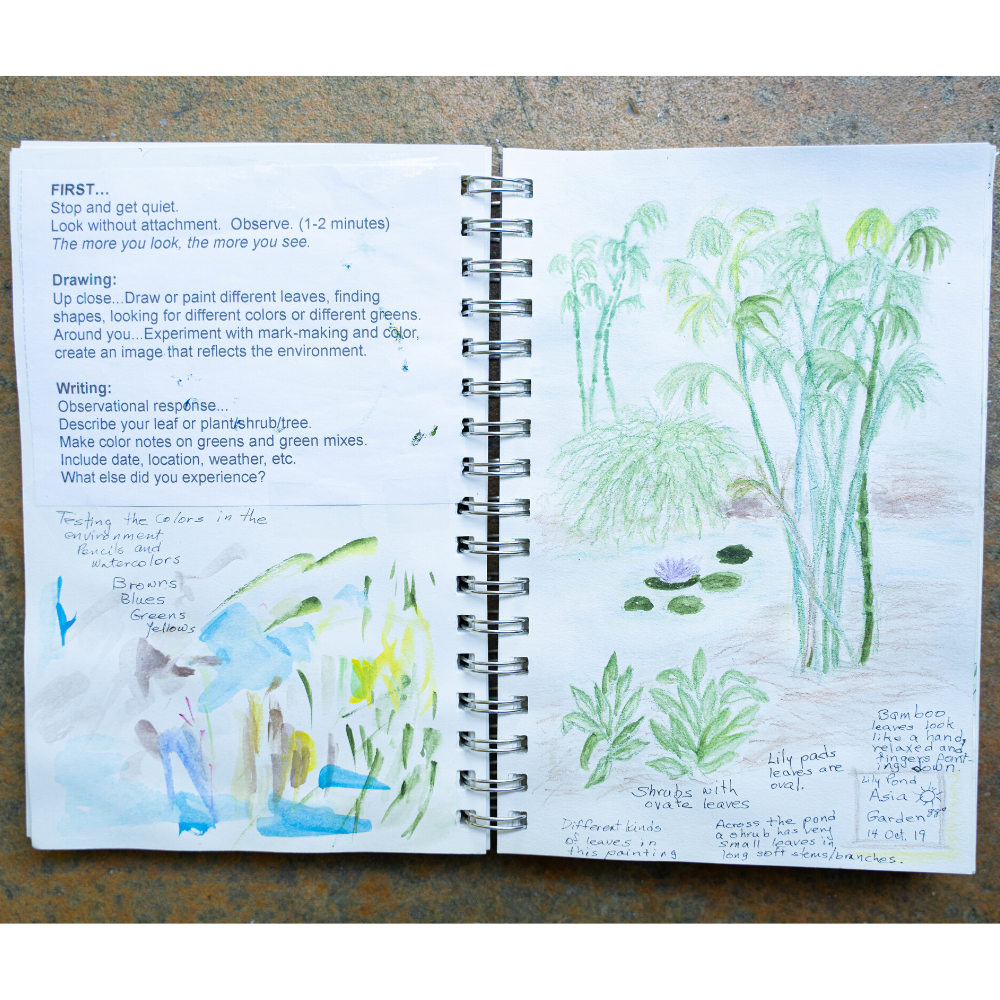 FIRST...
Stop and get quiet.
Look without attachment. Observe. (1-2 minutes)
The more you look, the more you see.
Drawing:
Up close...Draw or paint different leaves, finding
shapes, looking for different colors or different greens.
Around you...Experiment with mark-making and color,
create an image that reflects the environment.
Writing:
Observational response...
Describe your leaf or plant/shrub/tree.
Make color notes on greens and green mixes.
Include date, location, weather, etc.
What else did you experience?
Testing the colors in the
environment
Pencils and
watercolors
Browns
Blues
Greens
Yellows
Bamboo
leaves look
like a hand,
relaxed and
fingers point-
ing down.
Lily pads
leaves are
oval.
Shrubs with
ovate leaves
Different kinds
of leaves in
this painting
Across the pond
a shrub has very
small leaves in
long soft stems/branches.
Lily Pond
Asia
Garden 88°
14 Oct. 19